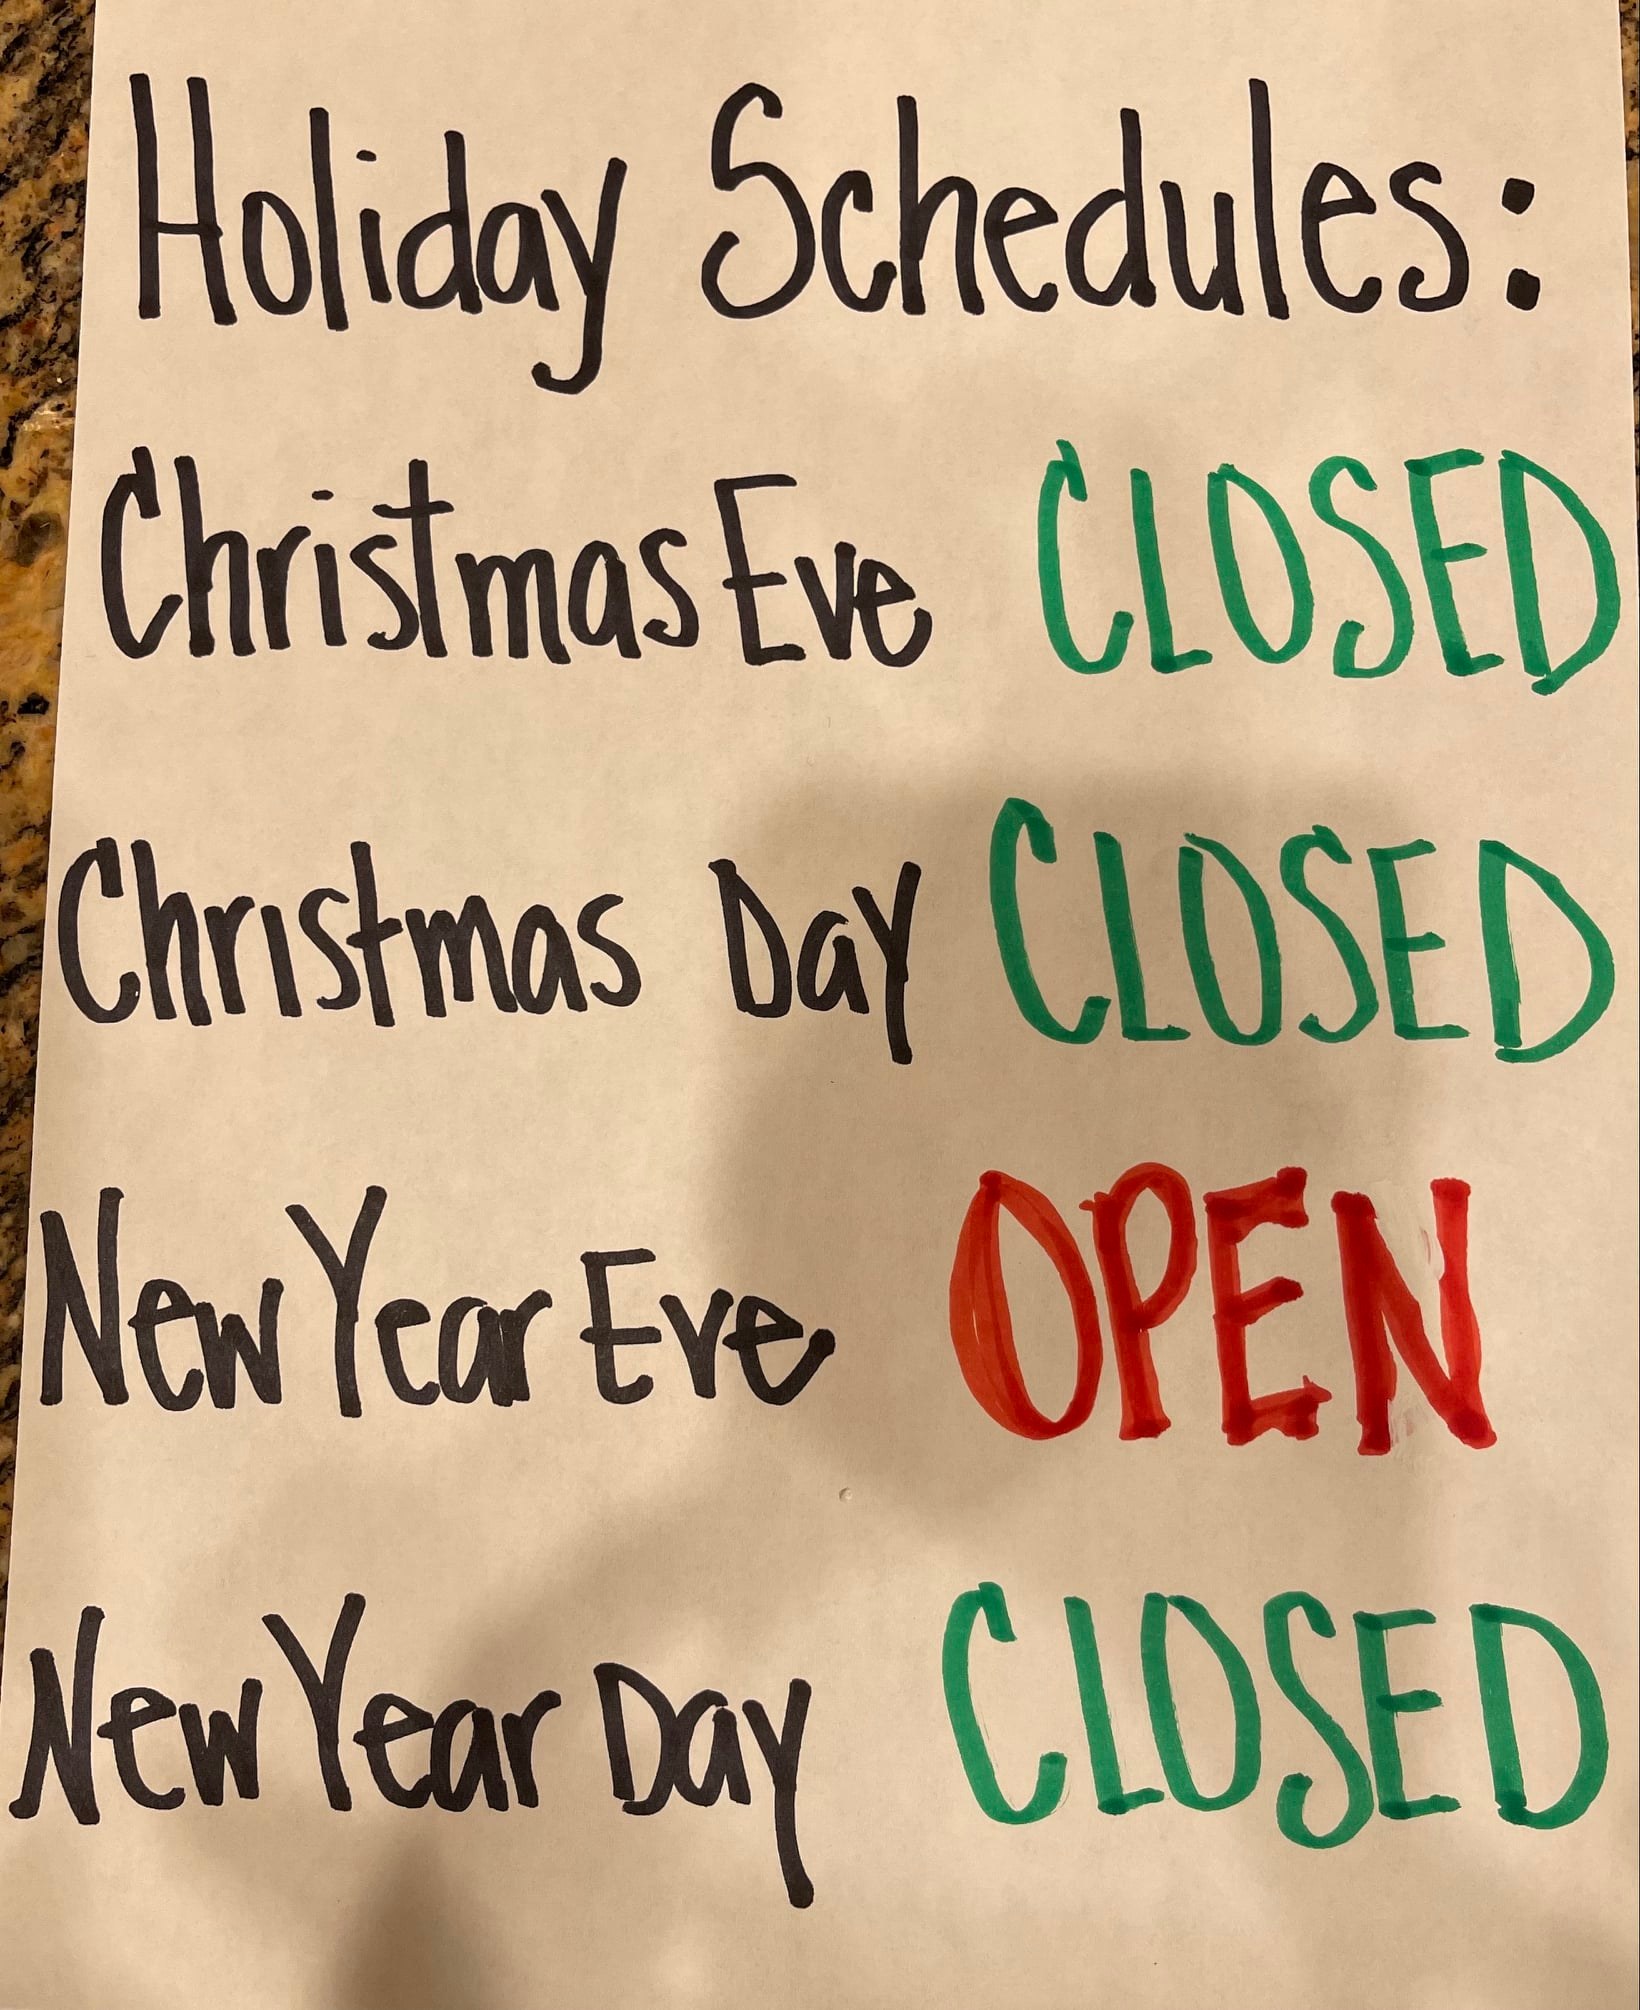 Holiday Schedules:
Christmas Eve CLOSED
Christmas Day CLOSED
New Year Eve OPEN
New Year Day CLOSED